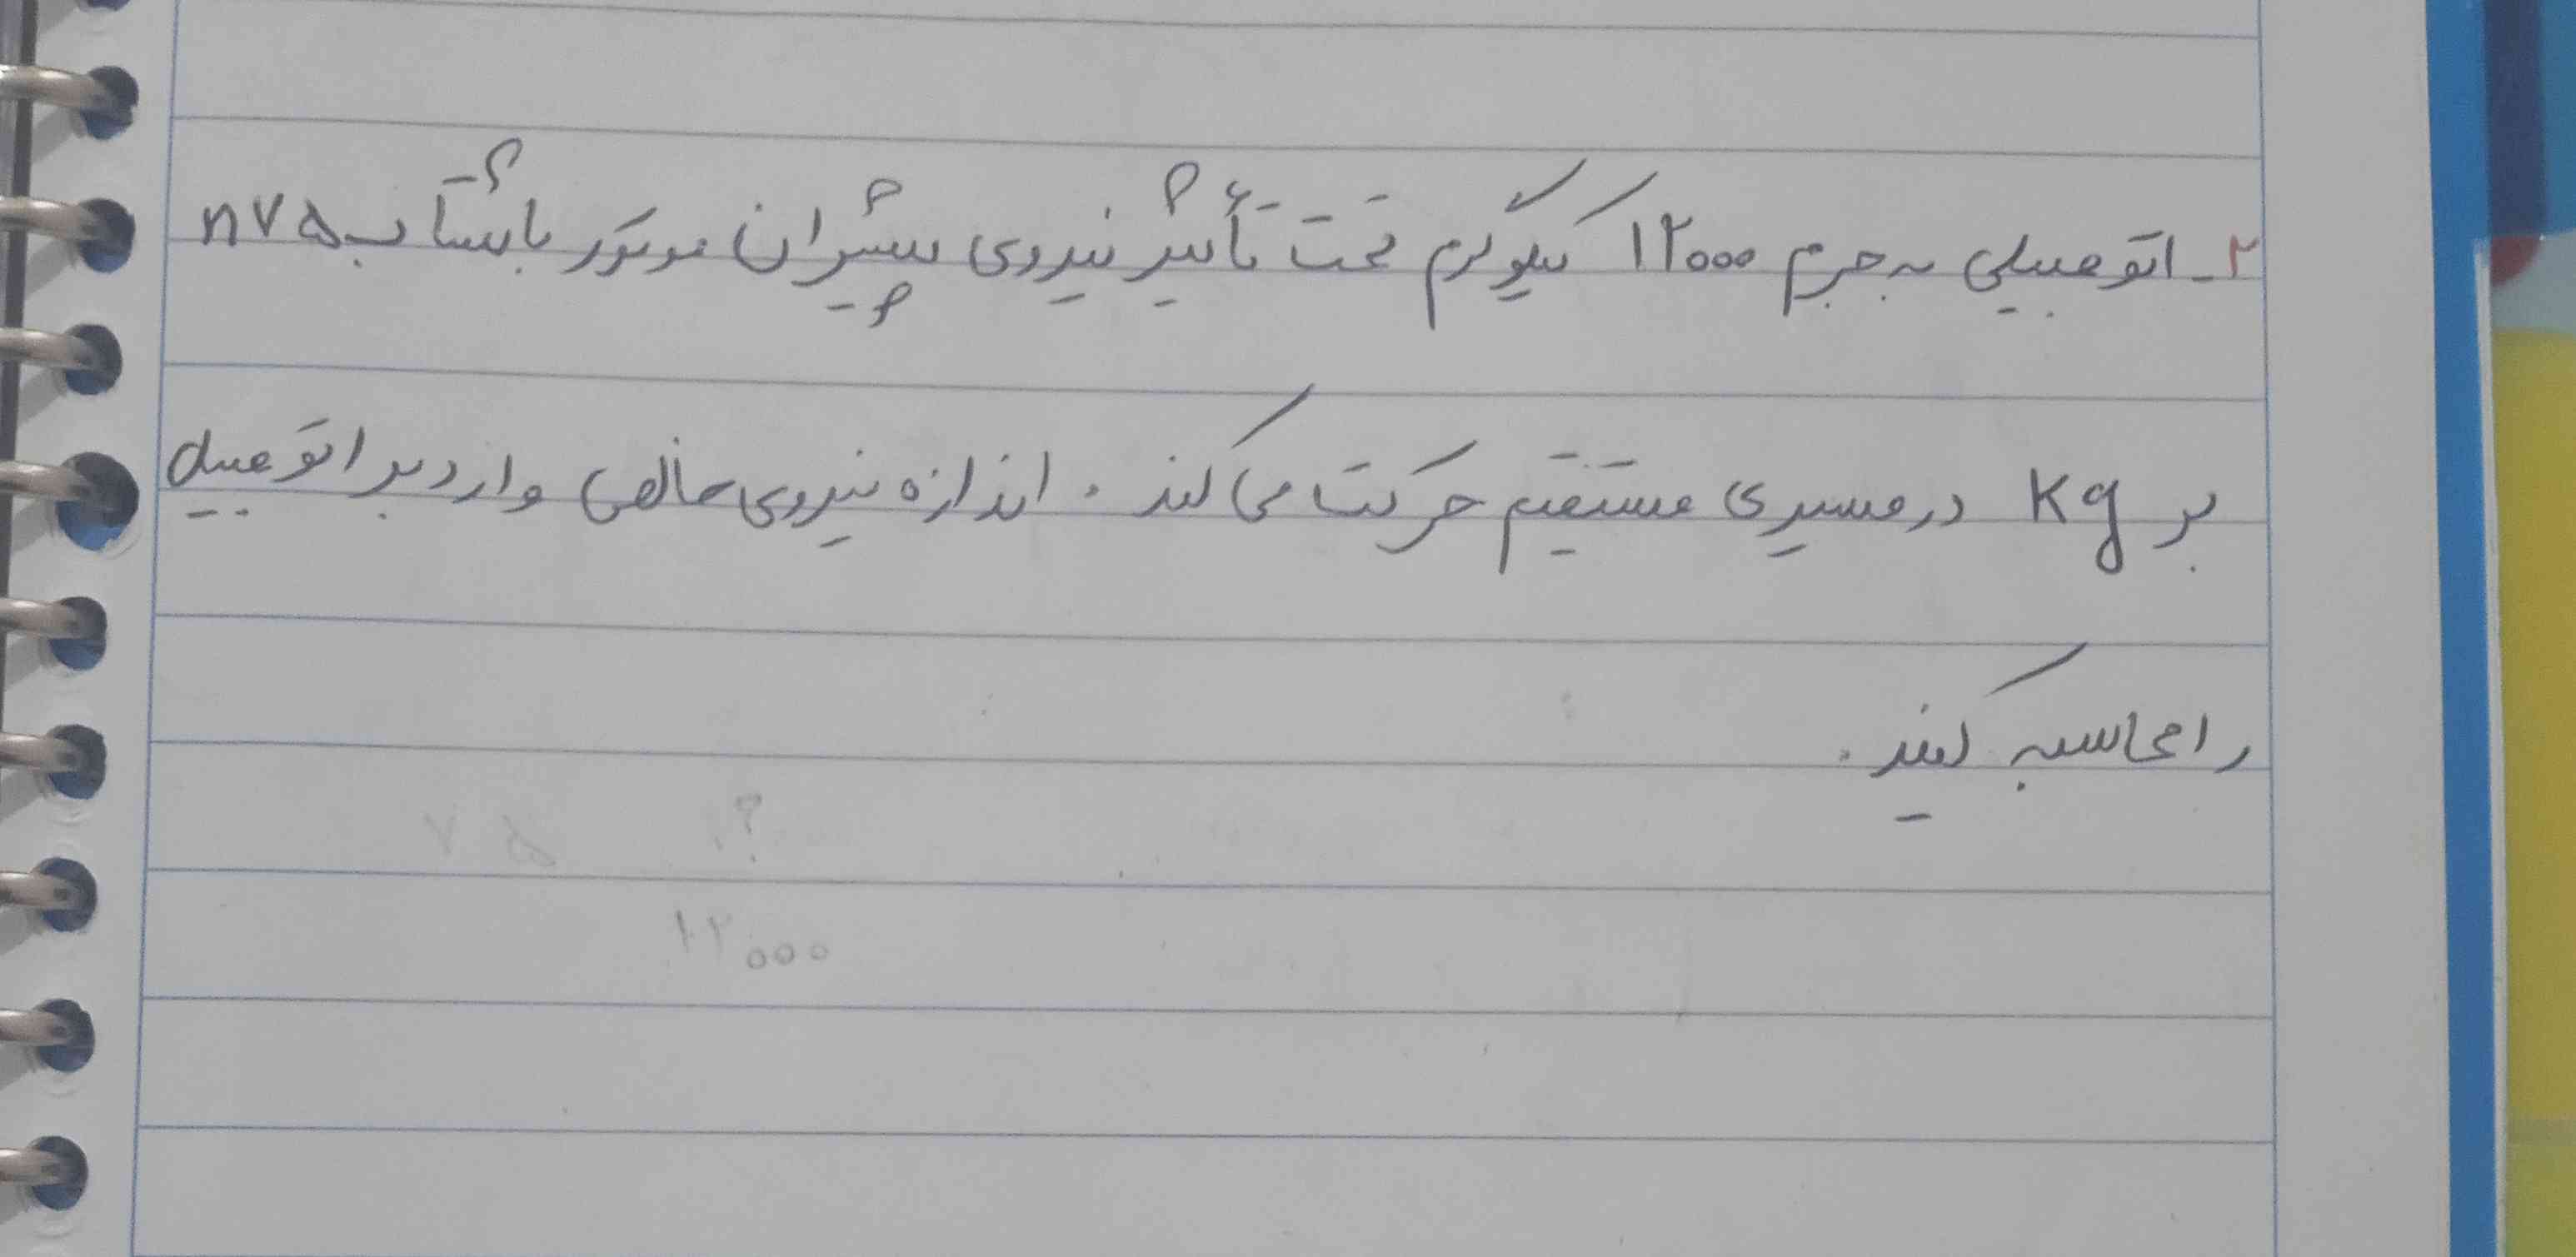 ۲- اتومبیلی به جرم ۱۲۰۰۰ کیلوگرم تحت تأثیر نیروی پیشران موتور با شتاب ۷۵ n
بر kg در مسیری مستقیم حرکت می کند . اندازه نیروی خالص وارد بر اتومبیل
را محاسبه کنید .
۷۵ ؟
۱۲۰۰۰